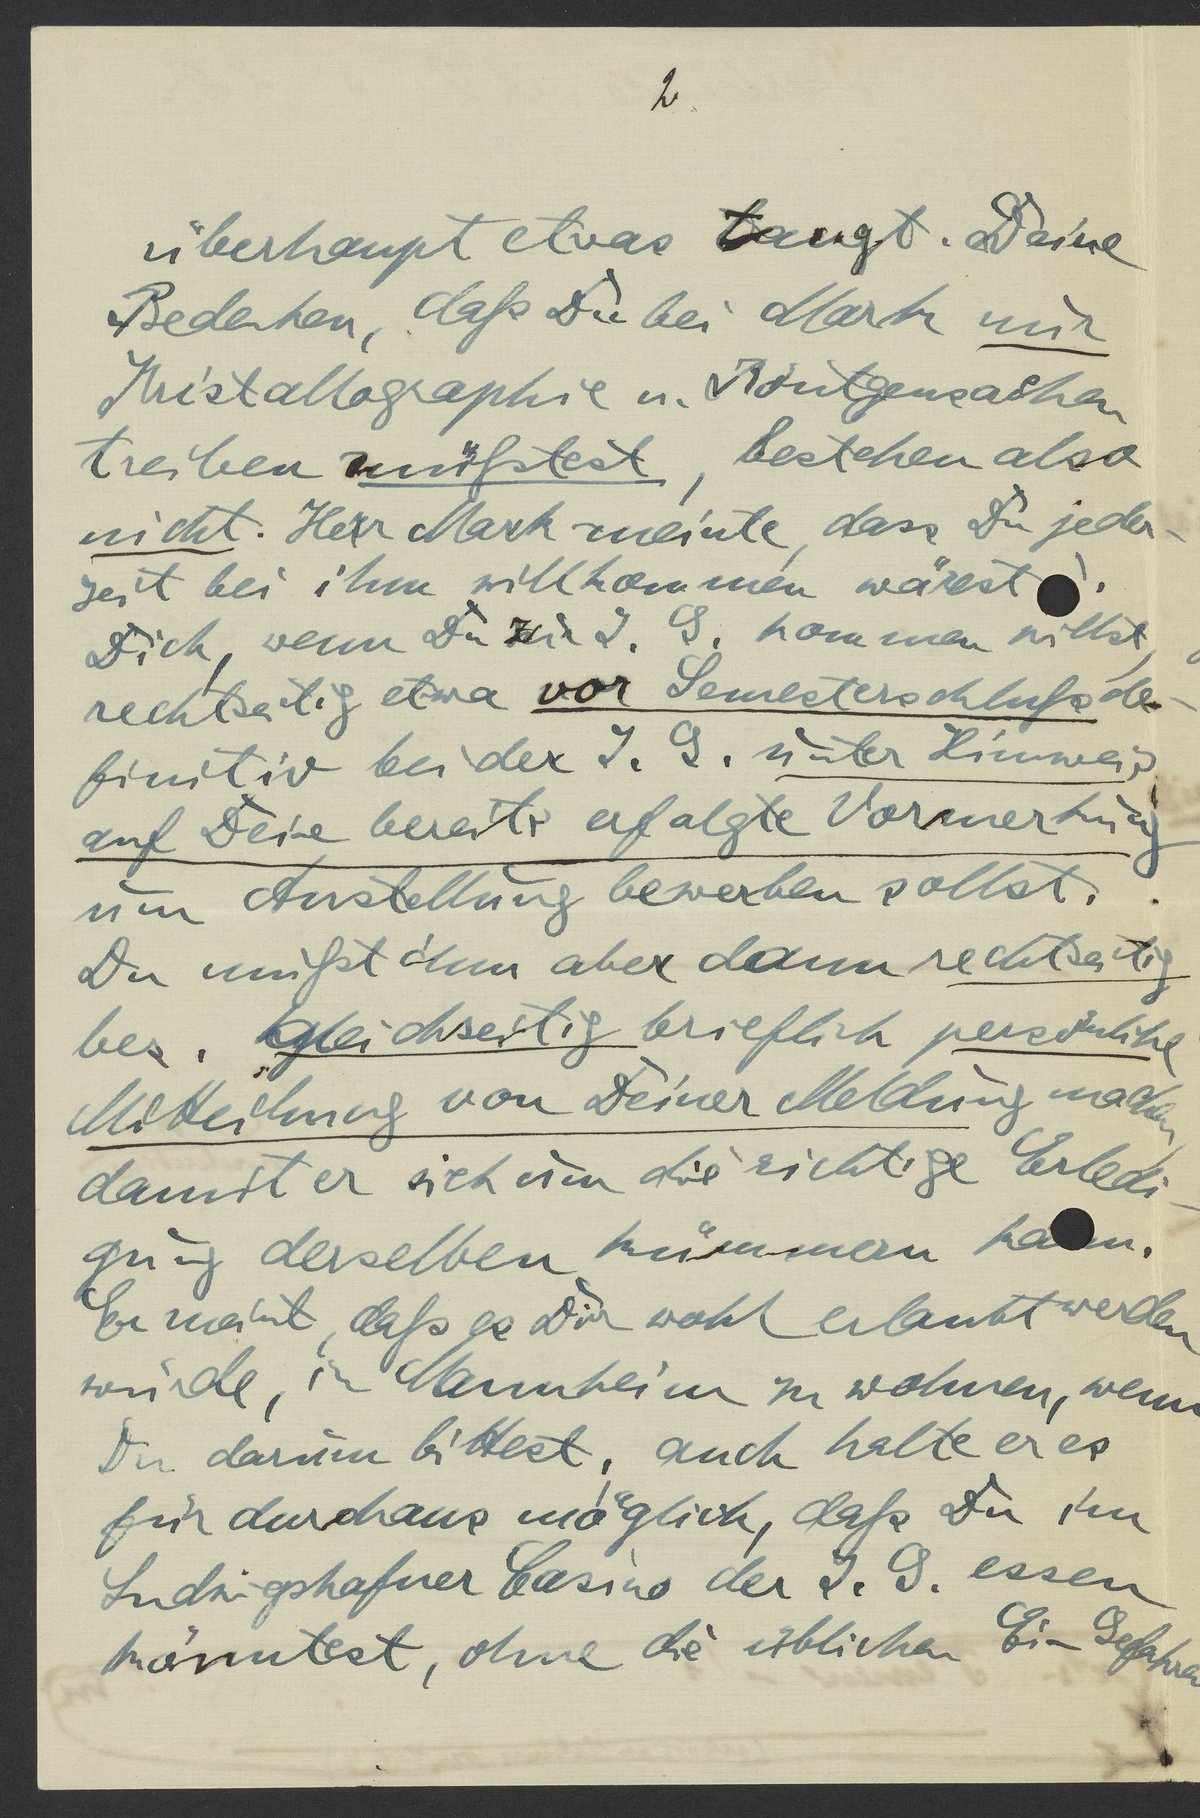 2.
überhaupt etwas taugt. Deine
Bedenken, daß Du bei Mark nur
Kristallographie u. Röntgensachen
treiben müßtest, bestehen also
nicht. Herr Mark meinte, dass Du jeder-
zeit bei ihm willkommen wärest.
Dich, wenn Du zur I. G. kommen willst,
rechtzeitig etwa vor Semesterschluß de-
finitiv bei der I. G. unter Hinweis
auf Deine bereits erfolgte Vormerkung
um Anstellung bewerben sollst.
Du mußt ihm aber dann rechtzeitig
bez. gleichzeitig brieflich persönliche
Mitteilung von Deiner Meldung machen,
damit er sich um die richtige Erledi-
gung derselben kümmern kann.
Er meint, daß es Dir wohl erlaubt werden
würde, in Mannheim zu wohnen, wenn
Du darum bittest, auch halte er es
für durchaus möglich, daß Du im
Ludwigshafner Casino der I. G. essen
könntest, ohne die üblichen Ein Gefahren